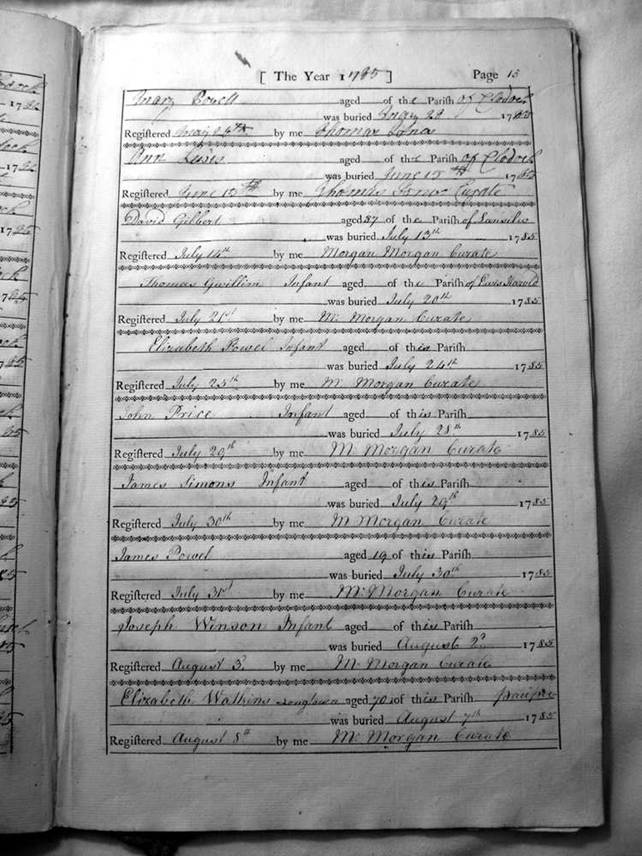 [ The Year 1785 ] Page 15
Mary Powell aged of the Parish of Clodock
was buried May 1785
Registered May 24th by me Thomas Jones
Ann Lewis aged of the Parish of Clodock
was buried June 12th 1785
Registered June 12th by me Thomas Jones Curate
David Gilbert aged 87 of the Parish of Lansilio
was buried July 13th 1785
Registered July 14th by me Morgan Morgan Curate
Thomas Gwillim Infant aged of the Parish of Ewis Harold
was buried July 20th 1785
Registered July 21st by me M. Morgan Curate
Elizabeth Powel Infant aged of this Parish
was buried July 24th 1785
Registered July 25th by me M Morgan Curate
John Price Infant aged of this Parish
was buried July 28th 1785
Registered July 29th by me M Morgan Curate
James Simons Infant aged of this Parish
was buried July 29th 1785
Registered July 30th by me M Morgan Curate
James Powel aged 19 of this Parish
was buried July 30th 1785
Registered July 31st by me M. Morgan Curate
Joseph Winson Infant aged of this Parish
was buried August 2d 1785
Registered August 3 by me M. Morgan Curate
Elizabeth Watkins Longtown aged 70 of this Parish
was buried August 7th 1785
Registered August 8th by me M. Morgan Curate